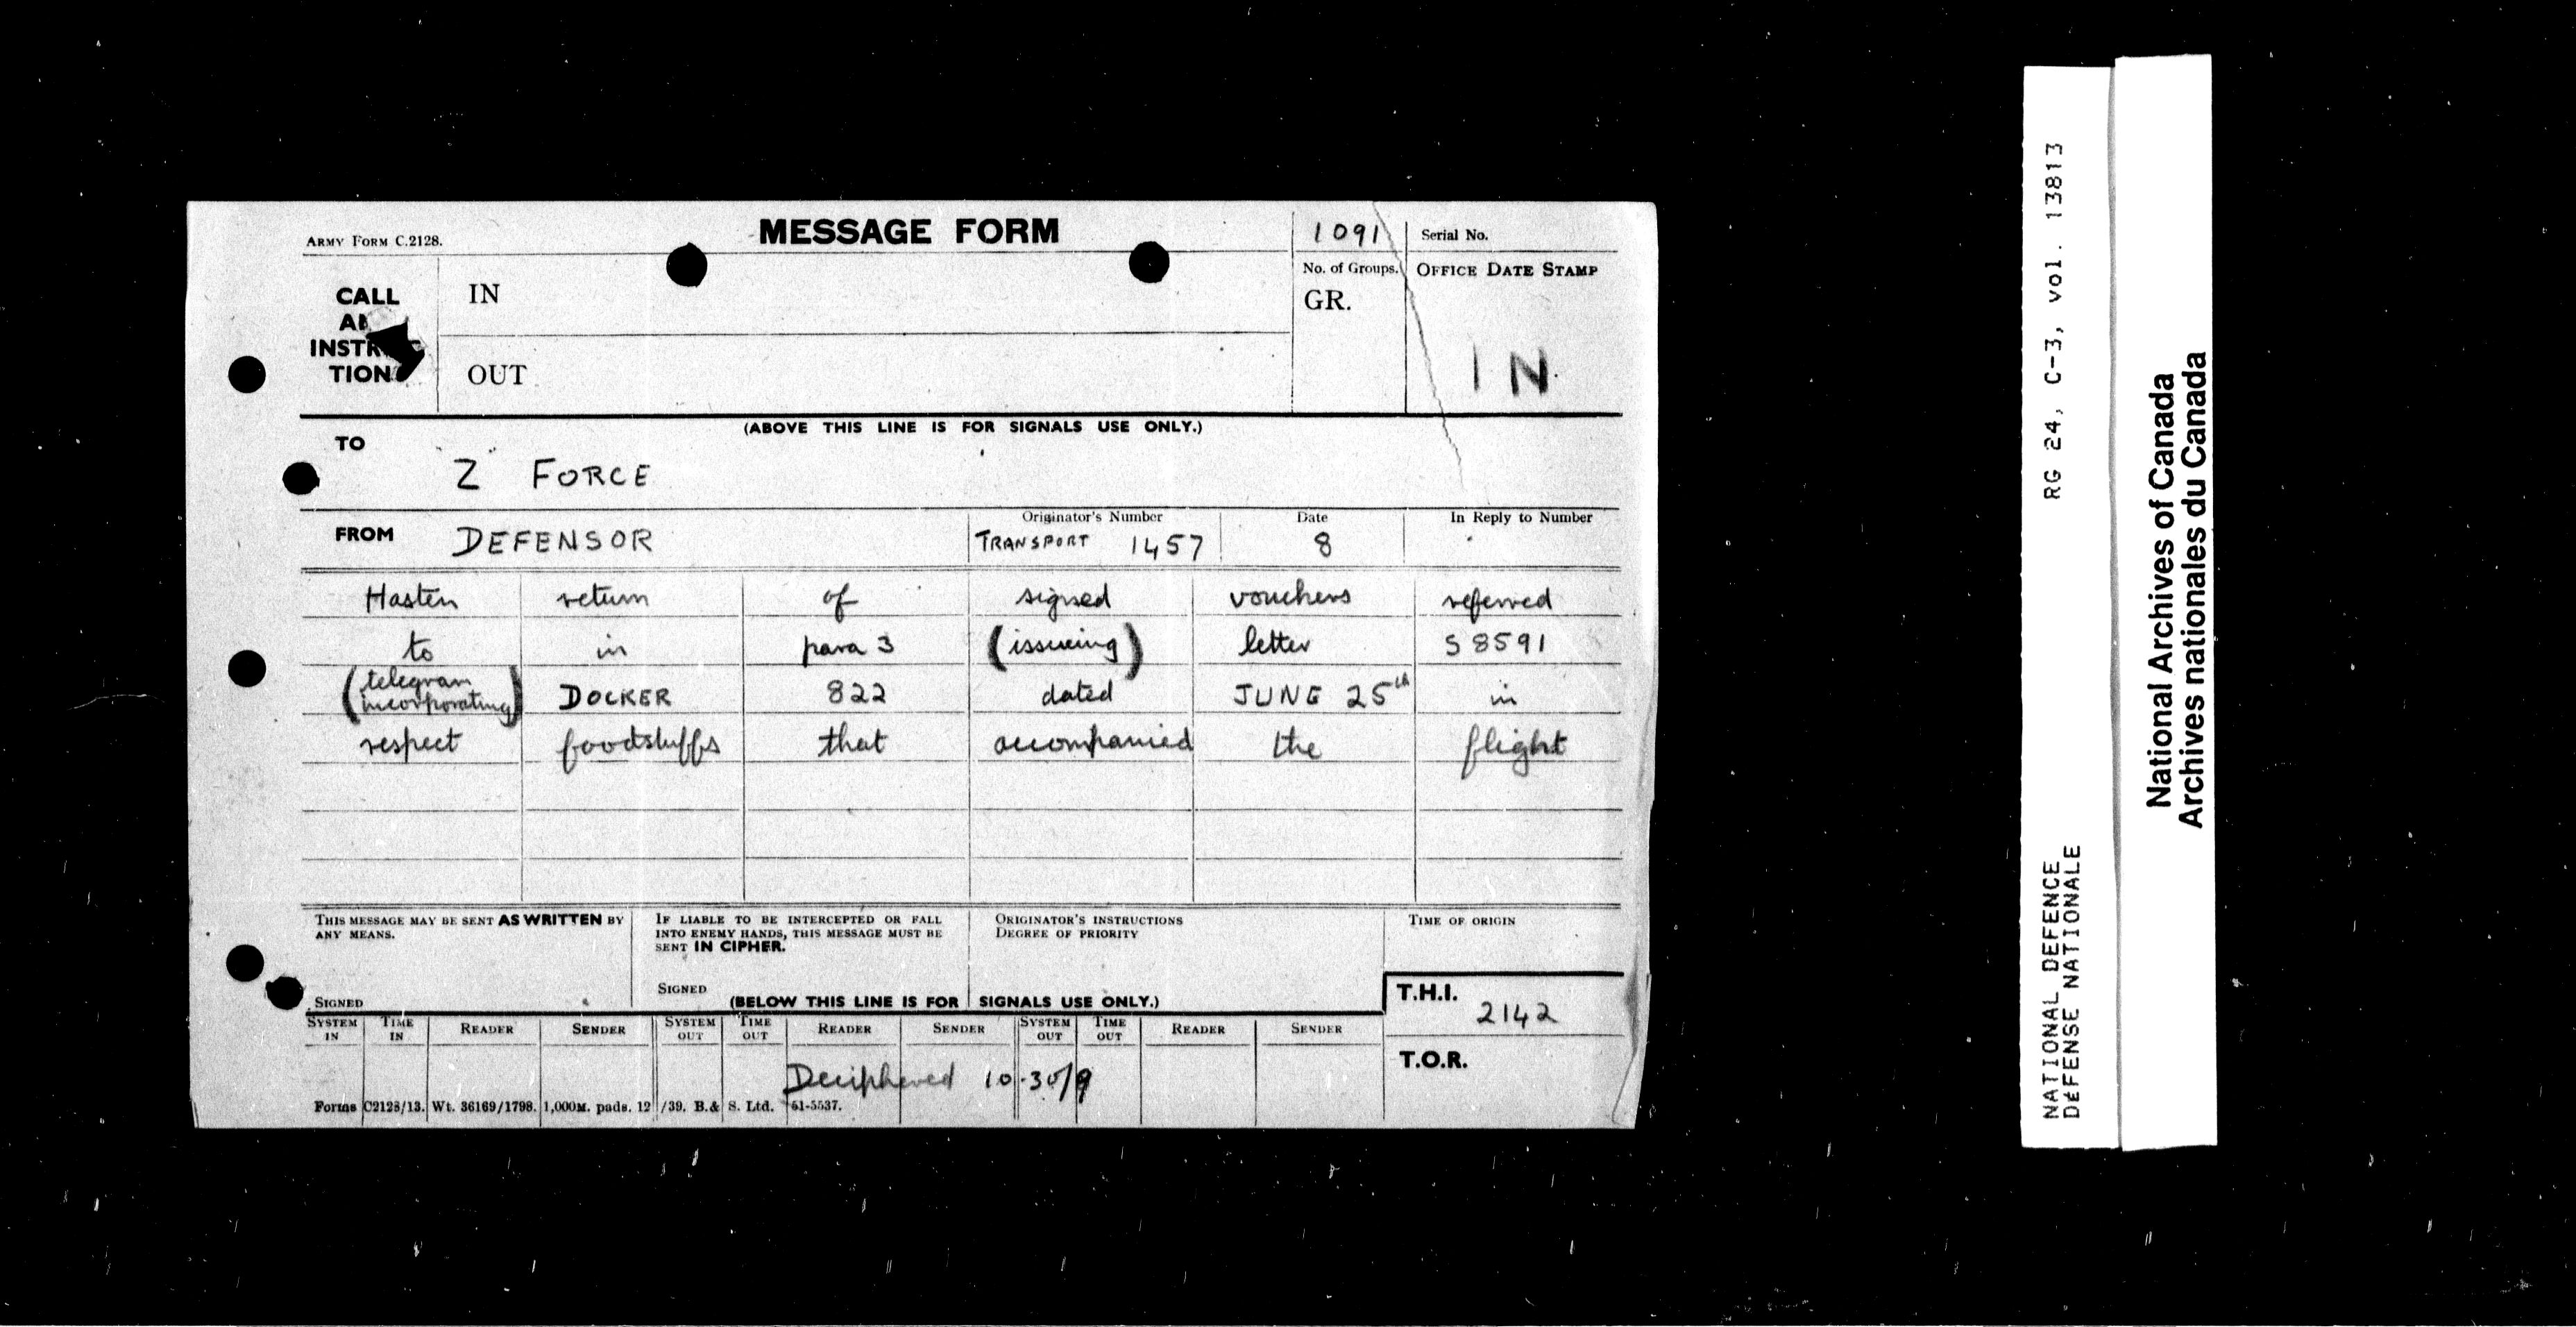 ARMY FORM C.2128.
MESSAGE FORM
1091
Serial No.
CALL
INSTR
TION
IN
OUT
No. of Groups.
GR.
OFFICE DATE STAMP
IN
(ABOVE THIS LINE IS FOR SIGNALS USE ONLY.)
TO
Z FORCE
FROM
DEFENSOR
Originator's Number
TRANSPORT 1457
Date
8
In Reply to Number
Hasten return of signed vouchers referred
to in para 3 (issueing) letter S 8591
(telegram incorporating) DOCKER 822 dated JUNE 25th in
respect foodstuffs that accompanied the flight
THIS MESSAGE MAY BE SENT AS WRITTEN BY
ANY MEANS.
SIGNED
IF LIABLE TO BE INTERCEPTED OR FALL
INTO ENEMY HANDS, THIS MESSAGE MUST BE
SENT IN CIPHER.
SIGNED
ORIGINATOR'S INSTRUCTIONS
DEGREE OF PRIORITY
TIME OF ORIGIN
(BELOW THIS LINE IS FOR SIGNALS USE ONLY.)
T.H.I.
2142
T.O.R.
SYSTEM IN TIME IN READER SENDER SYSTEM OUT TIME OUT READER SENDER SYSTEM OUT TIME OUT READER SENDER
Deciphered 10.30/9
Forms C2128/13. Wt. 36169/1798. 1,000M. pads. 12/39. B.& S. Ltd. 51-5537.
RG 24, C-3, vol. 13813
NATIONAL DEFENCE
DÉFENSE NATIONALE
National Archives of Canada
Archives nationales du Canada